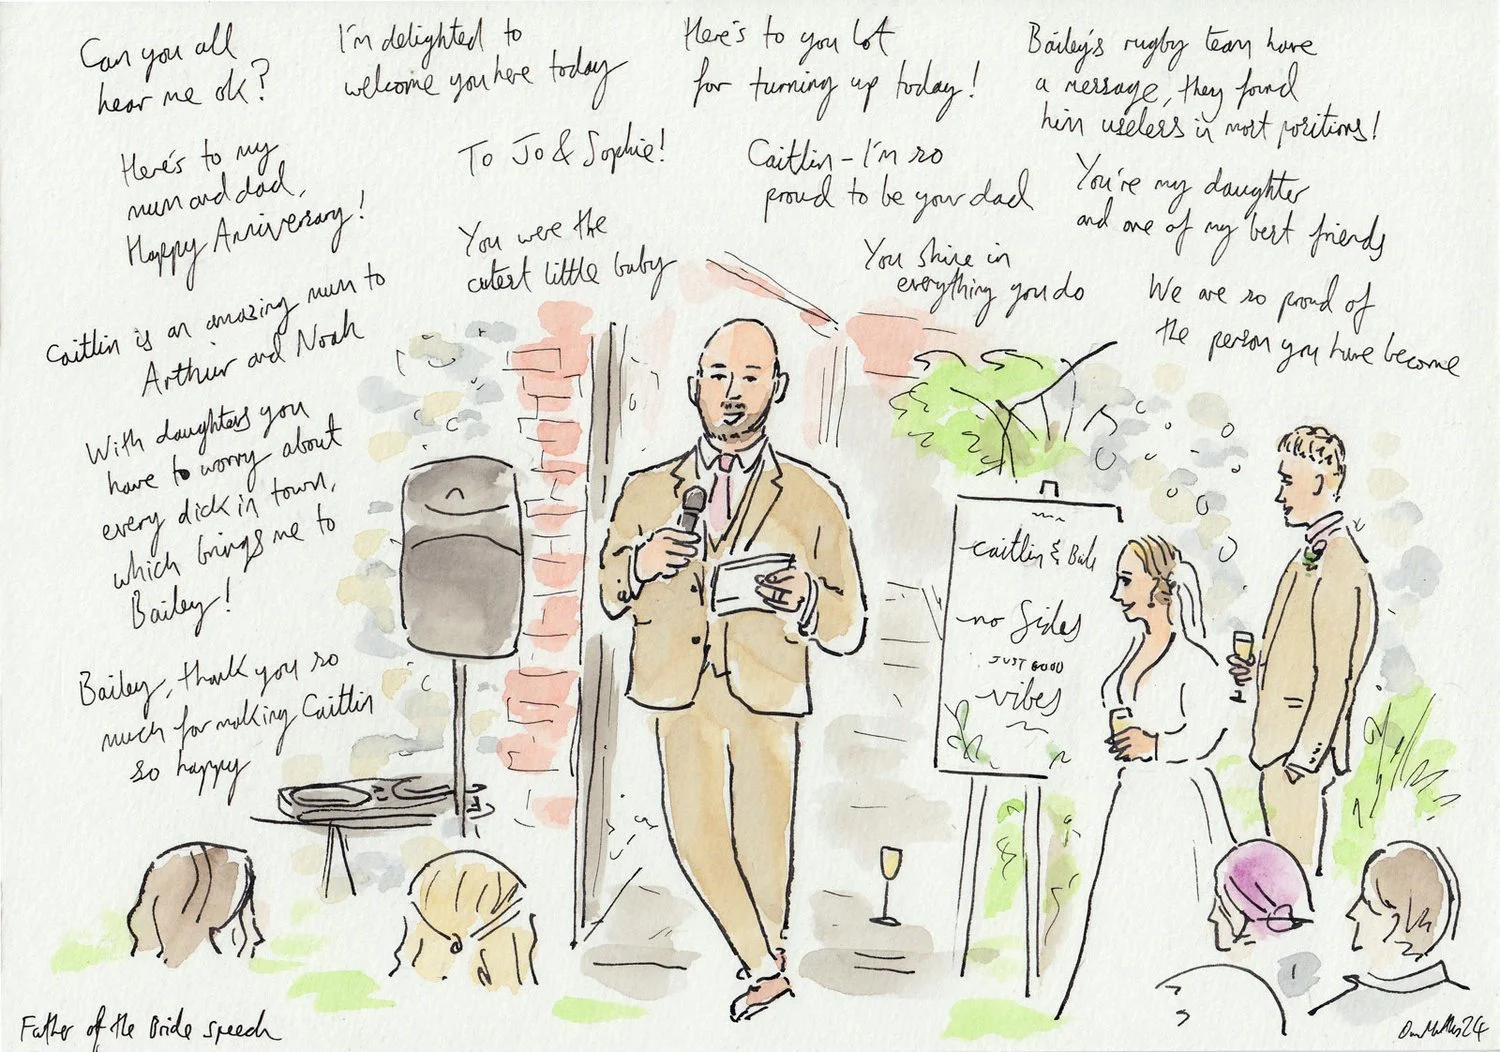 Can you all
hear me ok?
I'm delighted to
welcome you here today
Here's to you lot
for turning up today!
Bailey's rugby team have
a message, they found
him useless in most positions!
Here's to my
mum and dad,
Happy Anniversary!
To Jo & Sophie!
Caitlin - I'm so
proud to be your dad
You're my daughter
and one of my best friends
You were the
cutest little baby
You shine in
everything you do
We are so proud of
the person you have become
Caitlin is an amazing mum to
Arthur and Noah
With daughters you
have to worry about
every dick in town,
which brings me to
Bailey!
Bailey, thank you so
much for making Caitlin
so happy
Caitlin &
no Sides
JUST GOOD
vibes
Father of the Bride speech
24